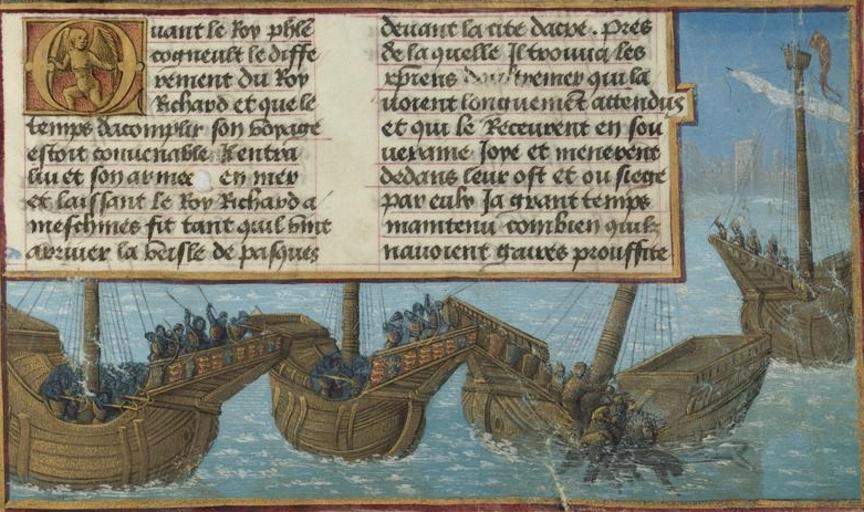 Quant le Roy phle
cogneult le diffe
rement du Roy
Richard et que le
temps dacomplir son voyage
estoit conuenable Il entra
luy et son armee en mer
et laissant le Roy Richard a
meschines fit tant quil vint
arriuer la veisle de pasques
deuant la cite dacre. Pres
de la quelle Il trouua les
xpriens doultremer qui la
uoient longuement attendus
et qui le Receurent en sou
ueraine Joye et menerent
dedans leur ost et ou siege
par eulx Ja grant temps
maintenu combien quilz
nauoient gaires prouffite